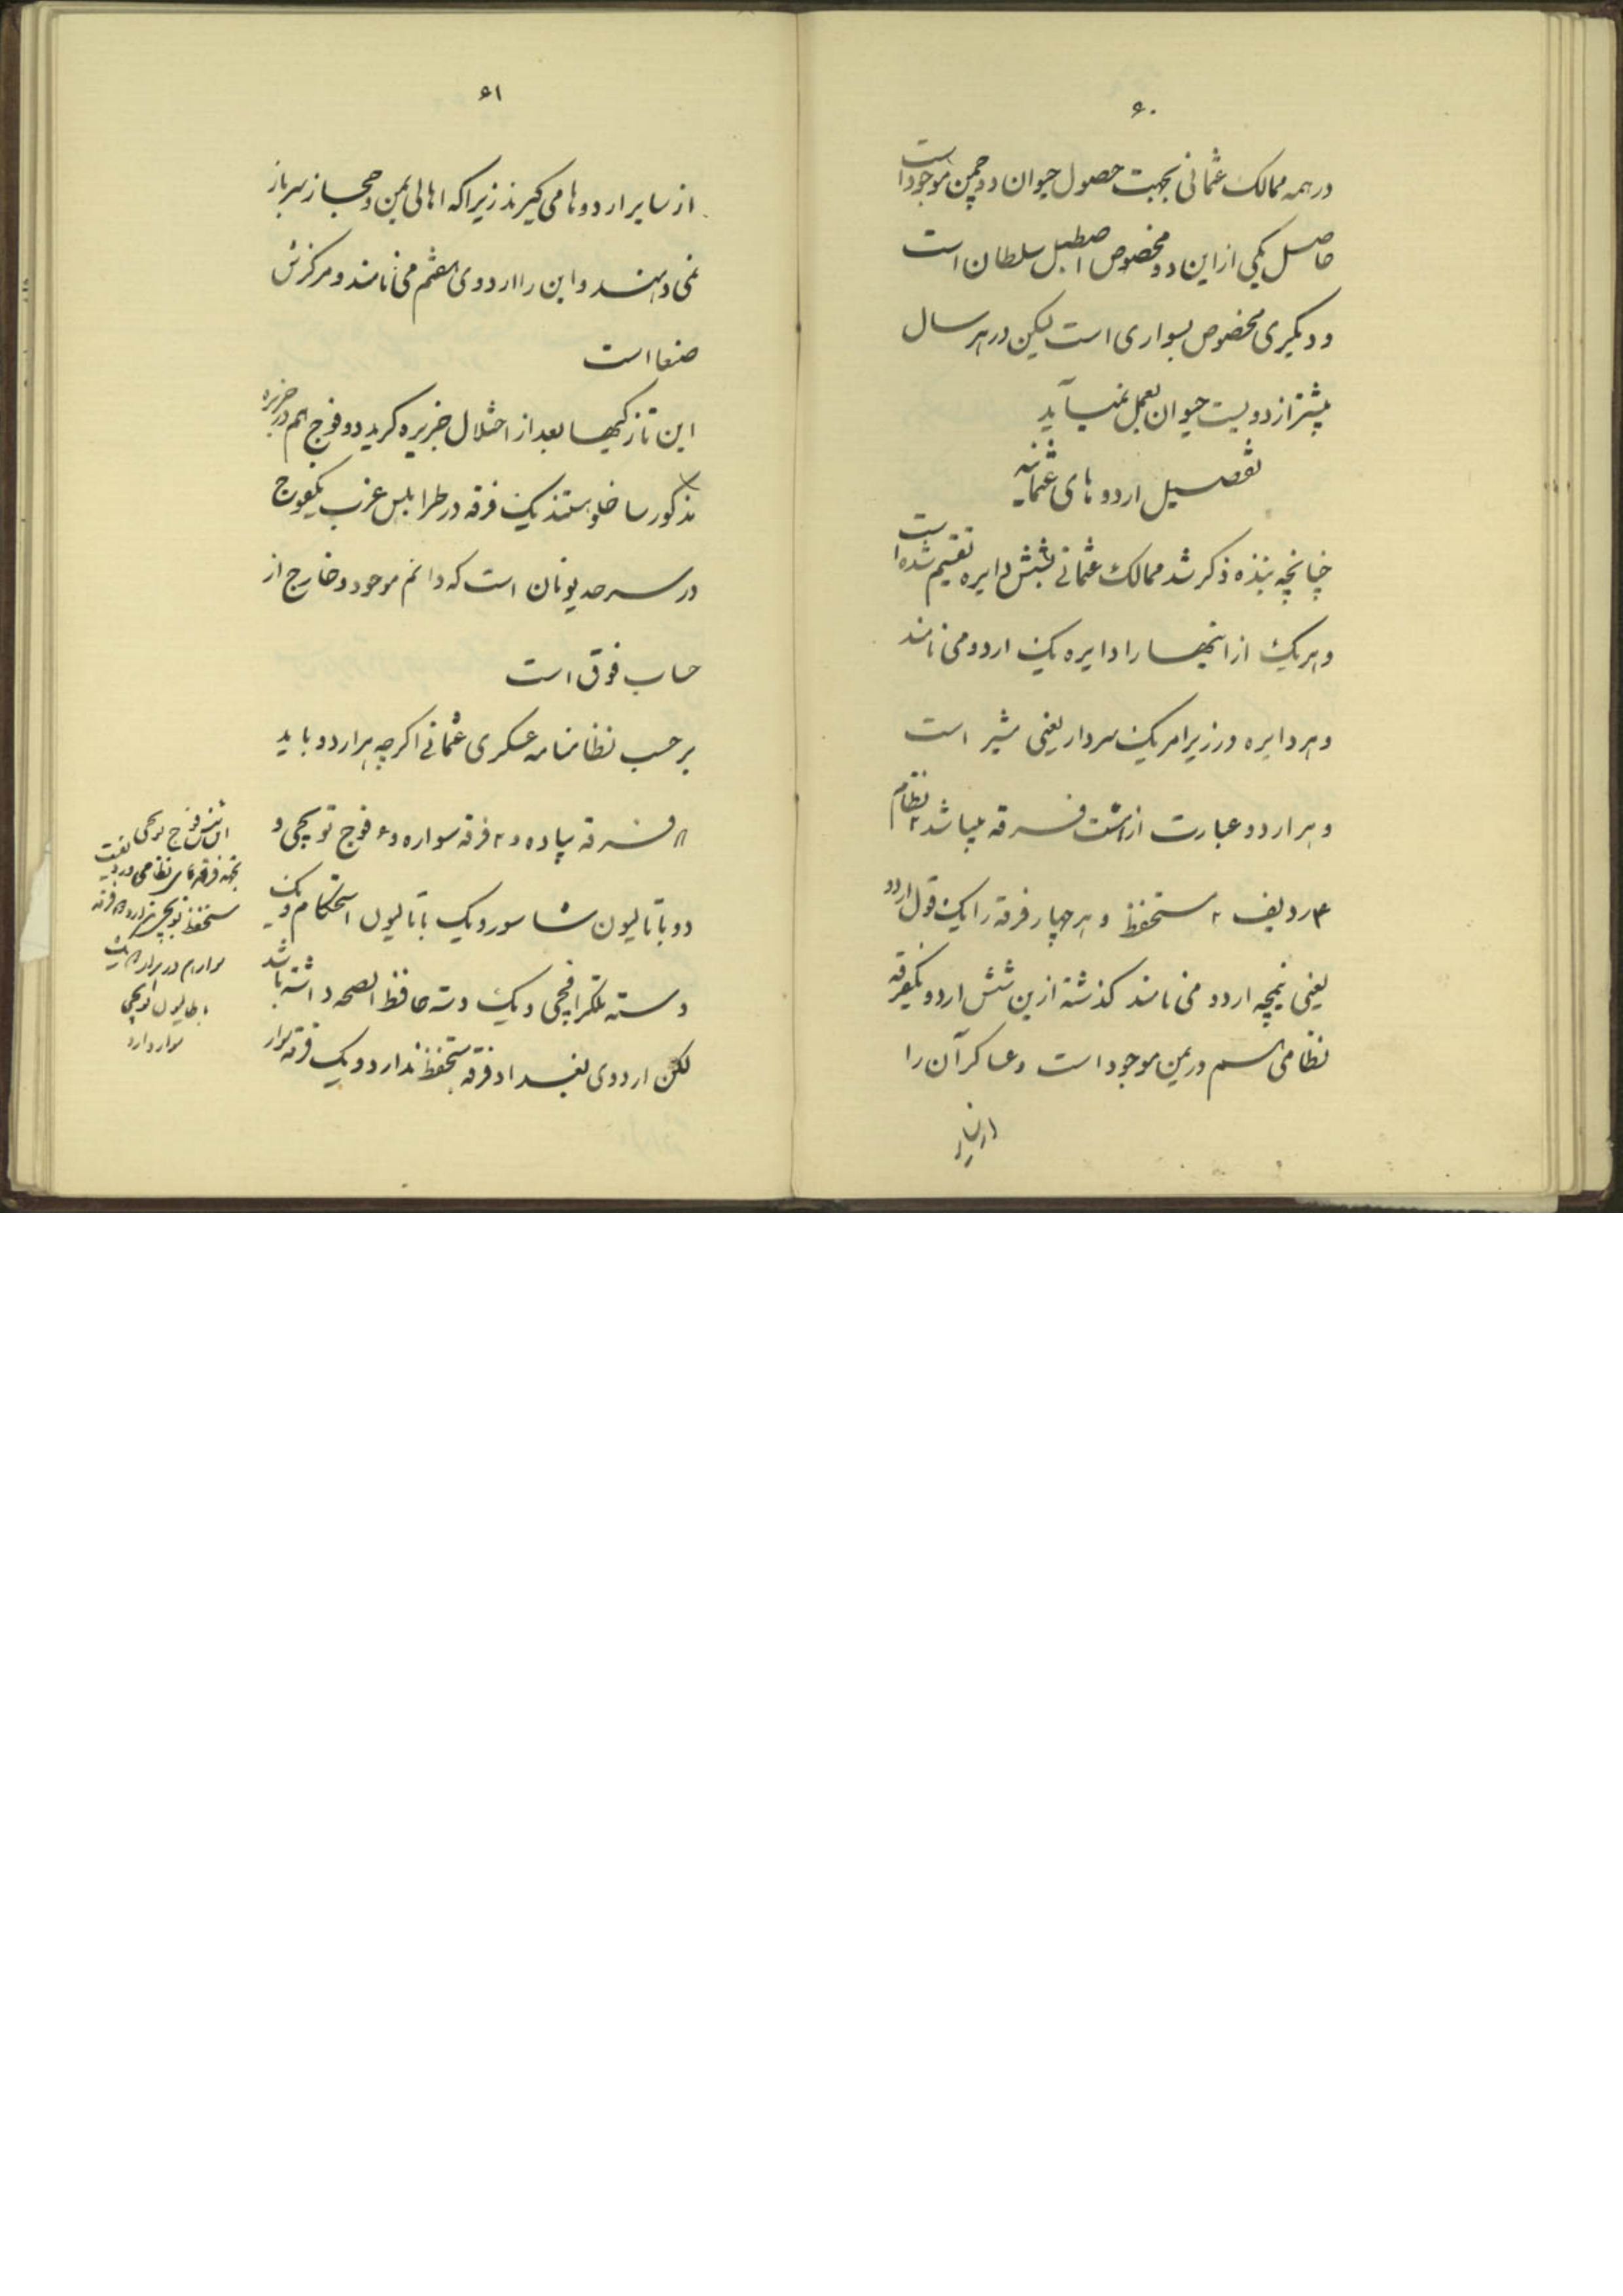 ۶۰
در همه ممالک عثمانی بجهت حصول حیوان دو چمن موجود است
حاصل یکی از این دو مخصوص اصطبل سلطان است
و دیگری مخصوص بسواری است لیکن در هر سال
بیشتر از دویست حیوان بعمل نمیآید
تفصیل اردوهای عثمانیه
چنانچه بنده ذکر شد ممالک عثمانی بشش دایره تقسیم شده است
و هر یک از اینها را دایره یک اردو می نامند
و هر دایره در زیر امر یک سردار یعنی مشیر است
و هر اردو عبارت از هشت فرقه میباشد ۲ نظام
۴ ردیف ۲ مستحفظ و هر چهار فرقه را یک قول اردو
یعنی نیمچه اردو می نامند گذشته ازین شش اردو یکفرقه
نظامی هم در یمن موجود است و عساکر آن را
از سایر
۶۱
از سایر اردوها می گیرند زیرا که اهالی یمن و حجاز سرباز
نمی دهند و این را اردوی هفتم می نامند و مرکزش
صنعا است
این تازگیها بعد از اختلال جزیره کرید دو فوج هم در جزیره
مذکور ساخلو هستند یک فرقه در طرابلس غرب یکفوج
در سرحد یونان است که دائم موجود و خارج از
حساب فوق است
بر حسب نظامنامه عسکری عثمانی اگرچه هر اردو باید
۸ فرقه پیاده و ۲ فرقه سواره و ۶ فوج توپچی و
دو باتالیون شاسور و یک باتالیون استحکام و یک
دسته تلگرافچی و یک دسته حافظ الصحه داشته باشد
لکن اردوی بغداد فرقه مستحفظ ندارد و یک فرقه سوار
این شش فوج توپچی
بجهه فرقه های نظامی و ردیف
مستحفظ توپچی ندارد فرقه
سوار هم در برابر یک
باتالیون توپچی
سوار دارد